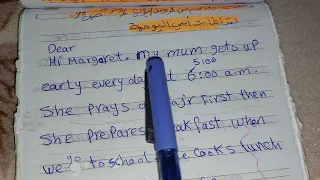 Dear
Hi Margaret. My mum gets up
5:00
early every da at 6:00 a.m.
She prays ajr first then
She prepares eakfast when
we go to school e cooks lunch